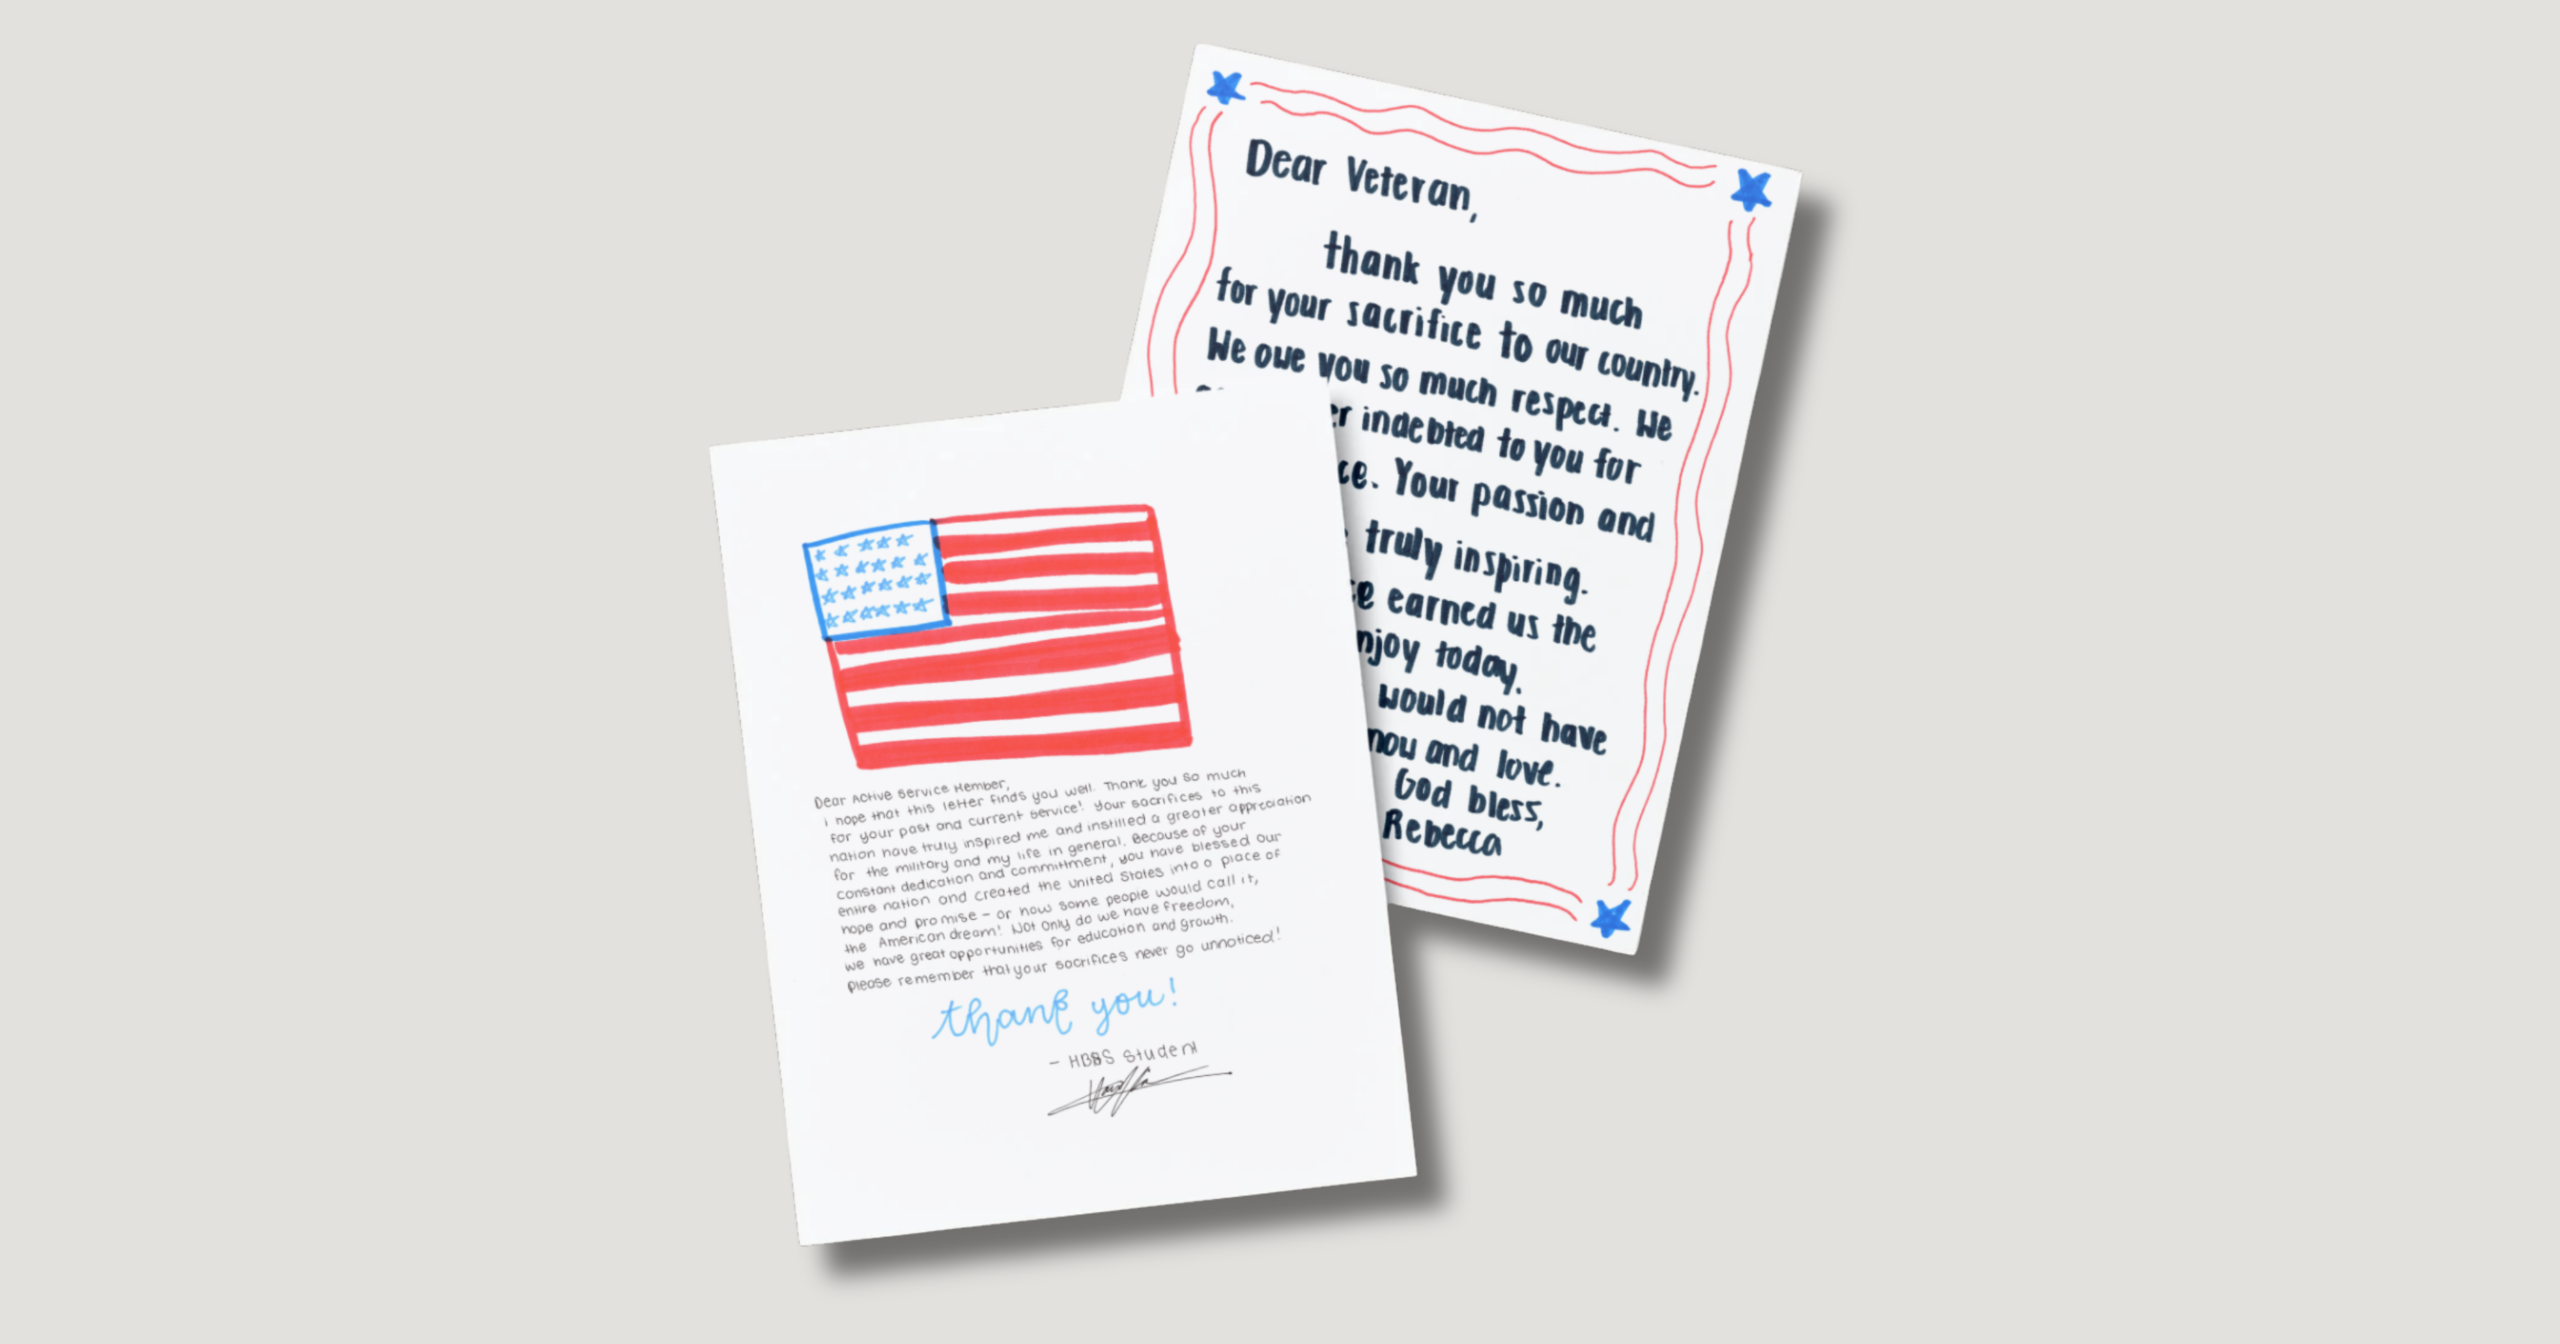 Dear Veteran,
thank you so much
for your sacrifice to our country.
We owe you so much respect. We
indebted to you for
Your passion and
truly inspiring.
earned us the
today.
would not have
and love.
God bless,
Rebecca
Dear Active Service Member,
I hope that this letter finds you well. Thank you so much
for your past and current service! Your sacrifices to this
nation have truly inspired me and instilled a greater appreciation
for the military and my life in general. Because of your
constant dedication and committment, you have blessed our
entire nation and created the United States into a place of
hope and promise - or how some people would call it,
the American dream! Not only do we have freedom,
we have great opportunities for education and growth.
Please remember that your sacrifices never go unnoticed!
thank you!
- HBBS Student